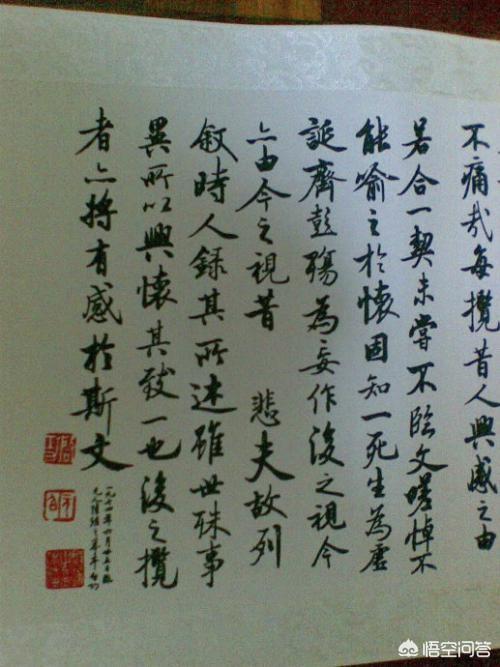 不痛哉每攬昔人興感之由
若合一契未嘗不臨文嗟悼不
能喻之於懷固知一死生為虛
誕齊彭殤為妄作後之視今
亦由今之視昔 悲夫故列
叙時人錄其所述雖世殊事
異所以興懷其致一也後之攬
者亦將有感於斯文
悟空问答